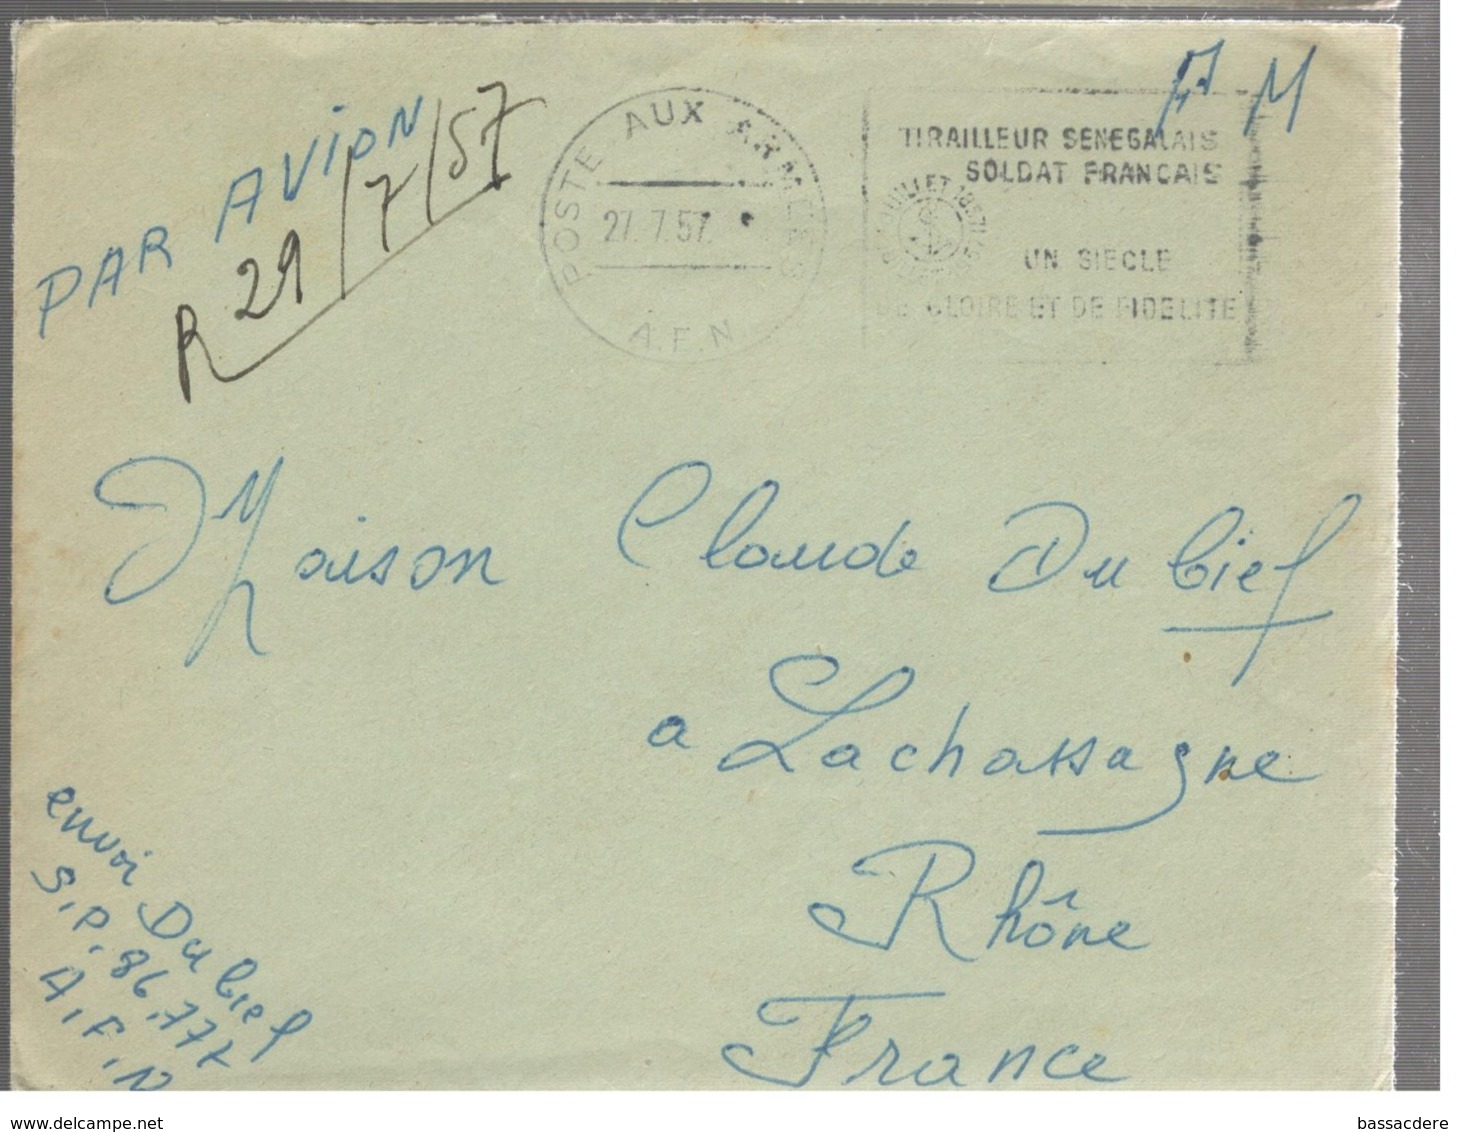 PAR AVION
R 29/7/57
POSTE AUX ARMEES
27.7.57
A.F.N
F M
TIRAILLEUR SENEGALAIS
SOLDAT FRANCAIS
JUILLET 1857
UN SIECLE
DE GLOIRE ET DE FIDELITE
Maison Claude Dubief
a Lachassagne
Rhône
France
envoi Dubief
S.P. 86.777
A.F.N
www.delcampe.net
bassacdere